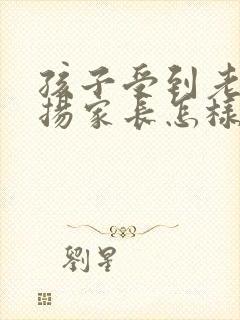 孩子受到老
揚家長怎樣
劉星